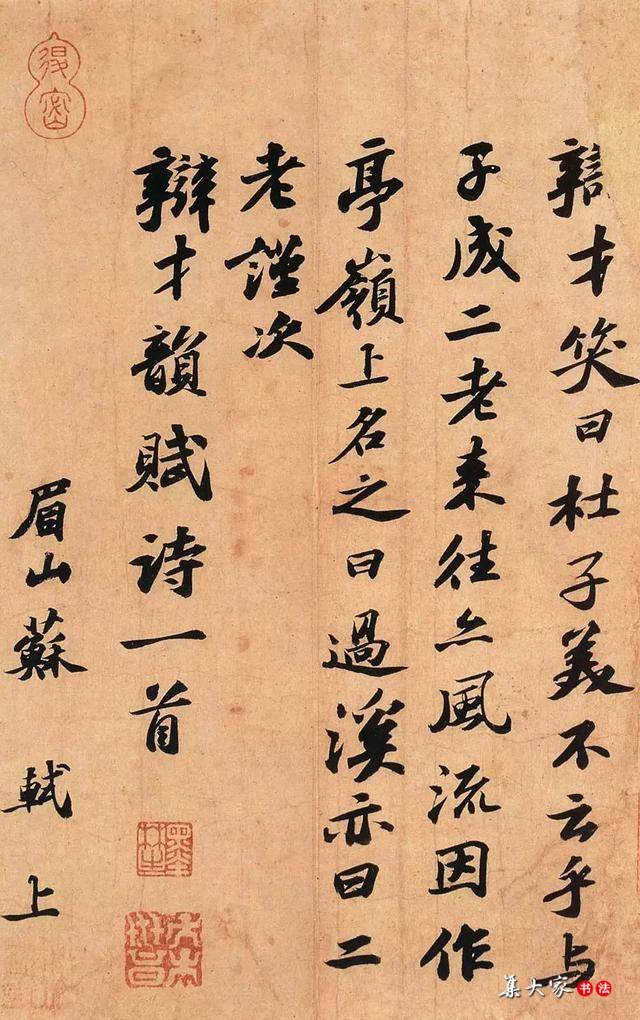 辯才笑曰杜子美不云乎与
子成二老来往亦風流因作
亭嶺上名之曰過溪亦曰二
老謹次
辯才韻賦詩一首
眉山蘇軾上
集大家书法